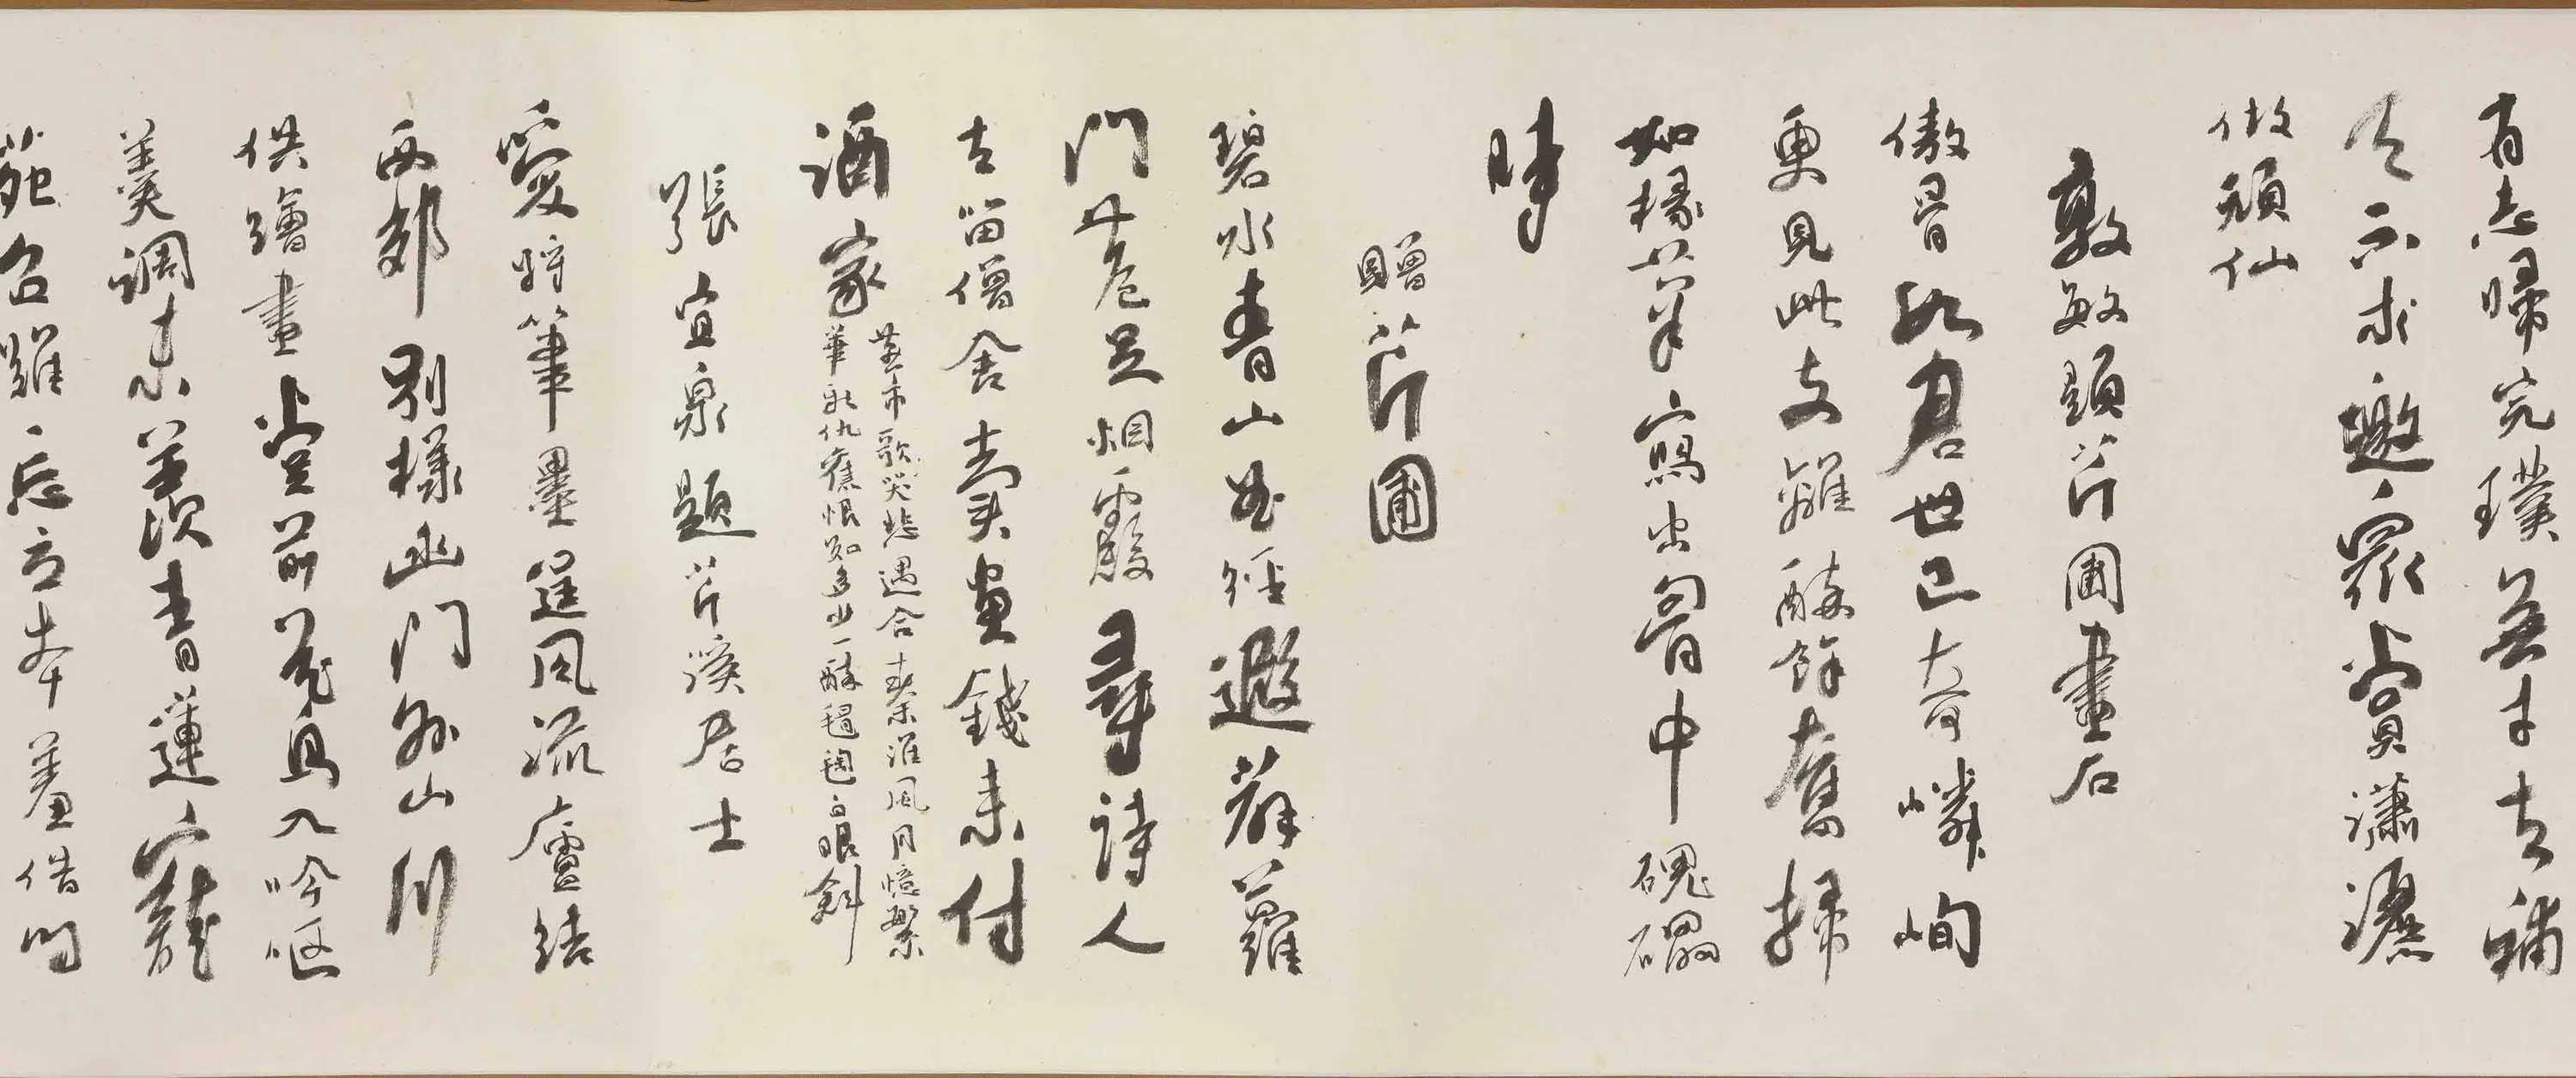 有志歸完璞無才去補
天不求邀眾賞瀟灑
做頑仙
敦敏題芹圃畫石
傲骨如君世已奇嶙峋
更見此支離醉餘奮掃
如椽筆寫出胸中磈礧
時
贈芹圃
碧水青山曲徑遐薜蘿
門巷足烟霞尋詩人
去留僧舍賣畫錢來付
酒家
燕市歌哭悲遇合秦淮風月憶繁
華新仇舊恨知多少一醉毷氉白眼斜
張宜泉題芹溪居士
愛將筆墨逞風流廬結
西郊別樣幽門外山川
供繪畫堂前花鳥入吟嘔
羹調未羨青蓮寵
苑召難忘立本羞借問